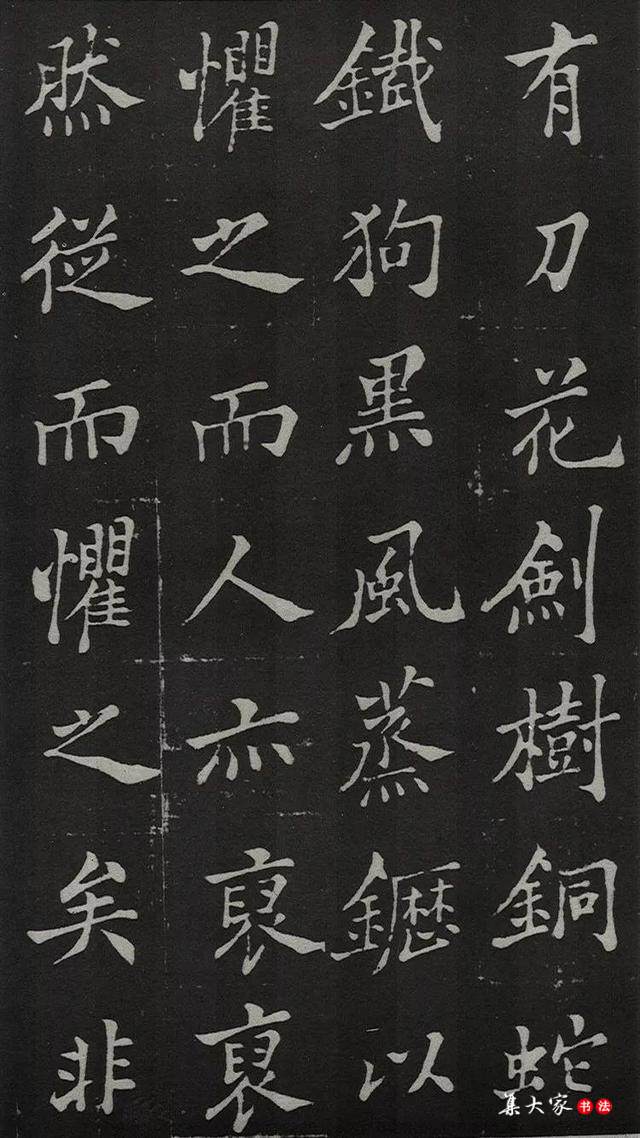 有刀花劍樹銅蛇
鐵狗黑風蒸䥶以
懼之而人亦袞袞
然從而懼之矣非
集大家 书法